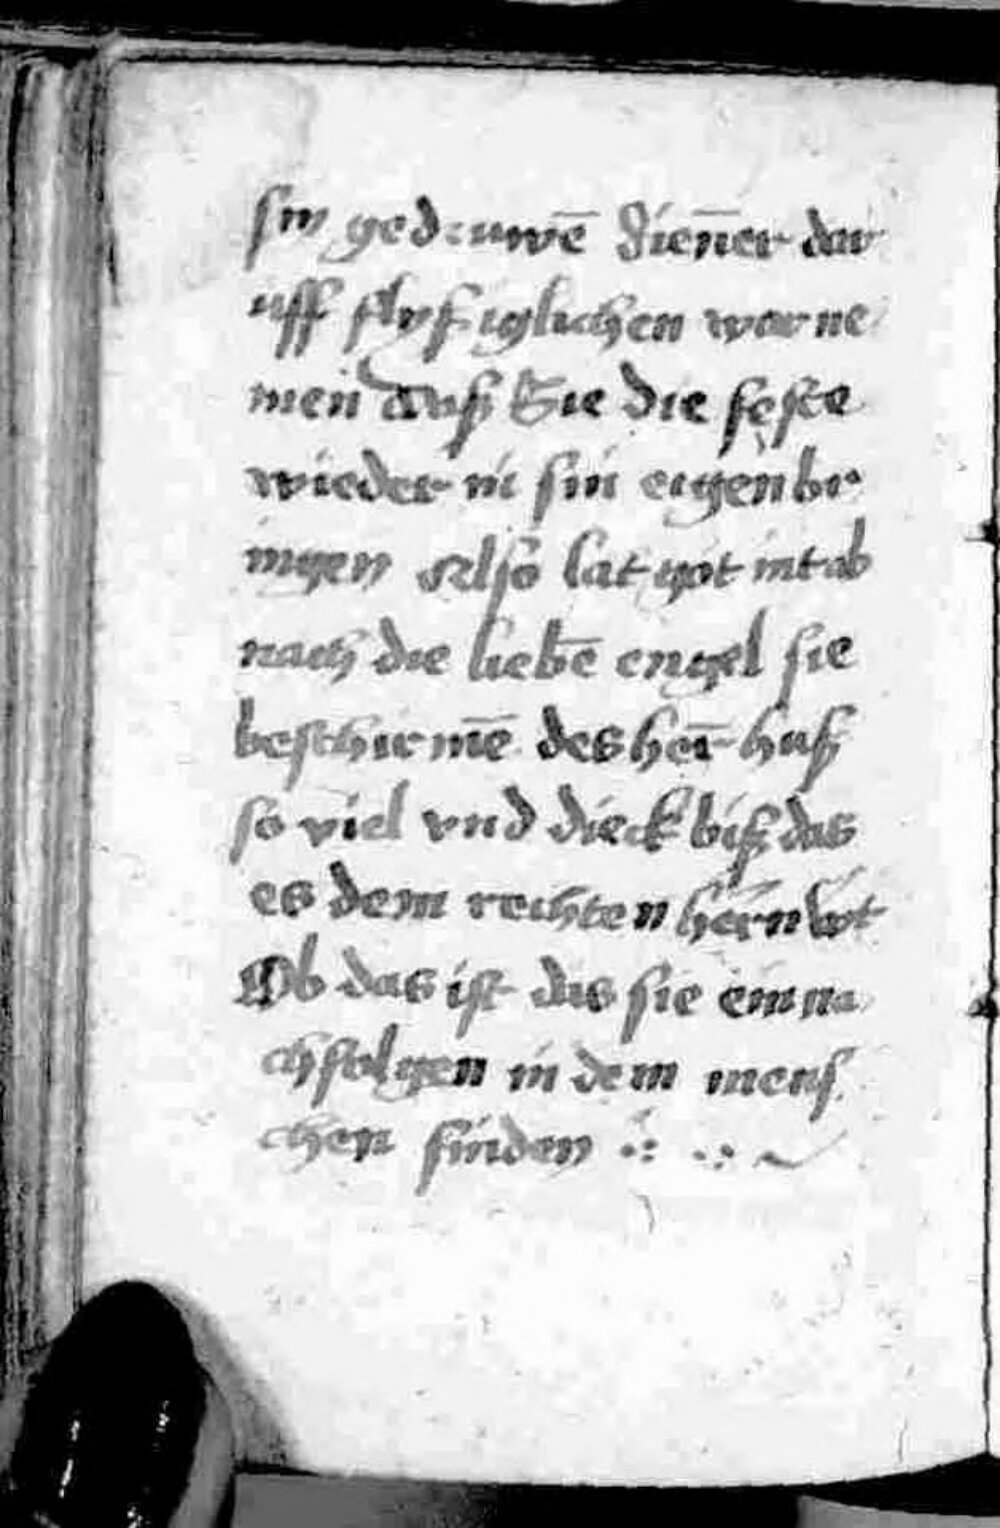 sin gedruwē dieñer dar
uff flyßiglichen warne
men daß Sie die feste
wieder in sin eigen br
ingen Also lat got int ab
nach die liebē engel sie
beschirmē des her̄ huß
so viel vnd dieck biß das
es dem rechten hern wt
Ob das ist das sie ein na
chfolgen in dem mens
chen finden